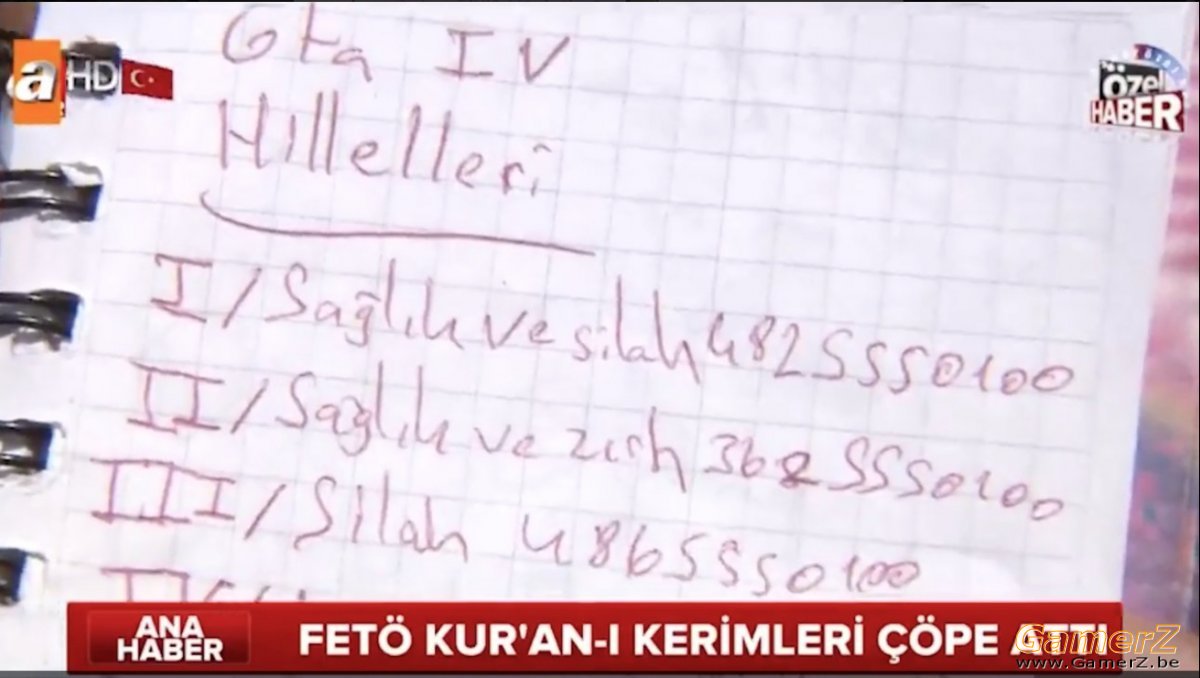 Gta IV
a HD
ÖZEL
Özel
HABER
Hillelleri
I/Sağlık ve silah 4825550100
II/Sağlık ve zırh 3625550100
III/Silah 4865550100
ANA
HABER
FETÖ KUR'AN-I KERİMLERİ ÇÖPE ATTI
GamerZ
www.GamerZ.be